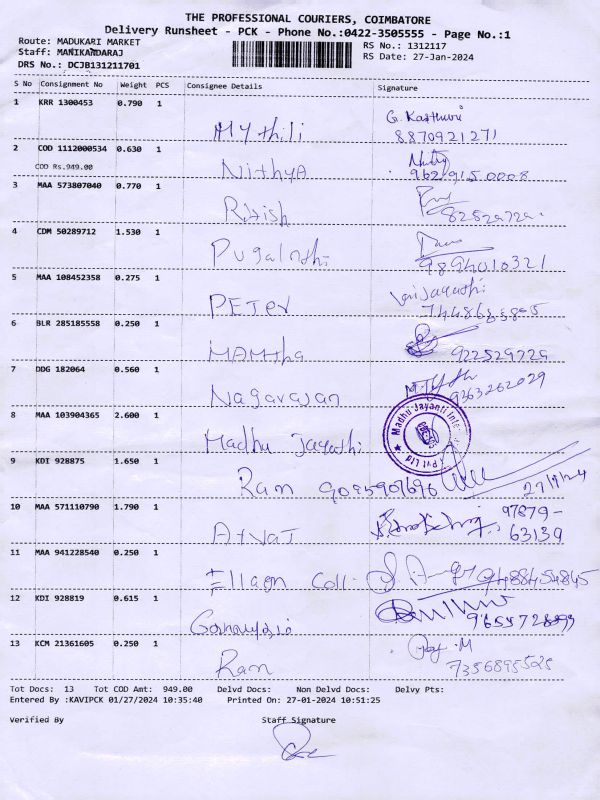 THE PROFESSIONAL COURIERS, COIMBATORE
Delivery Runsheet - PCK - Phone No.:0422-3505555 - Page No.:1
Route: MADUKARI MARKET
RS No.: 1312117
Staff: MANIKANDARAJ
RS Date: 27-Jan-2024
DRS No.: DCJB131211701
S No Consignment No Weight PCS Consignee Details Signature
1 KRR 1300453 0.790 1 Mythili G. Kasthuri
8870921271
2 COD 1112000534 0.630 1 Nithya
COD Rs.949.00
3 MAA 573807040 0.770 1 Ritish
4 CDM 50289712 1.530 1 Pugalnthi
9894010321
5 MAA 108452358 0.275 1 PETER
6 BLR 285185558 0.250 1 MAMtha
922529729
7 DDG 182064 0.560 1 Nagarajan
9363262029
8 MAA 103904365 2.600 1 Madhu Jayathi
Madhu Jayanti Pvt Ltd
9 KDI 928875 1.650 1 Ram 9095907696
27/1/24
10 MAA 571110790 1.790 1 97879-
63139
11 MAA 941228540 0.250 1
12 KDI 928819 0.615 1
13 KCM 21361605 0.250 1 Ram
7356895525
Tot Docs: 13 Tot COD Amt: 949.00 Delvd Docs: Non Delvd Docs: Delvy Pts:
Entered By :KAVIPCK 01/27/2024 10:35:40 Printed On: 27-01-2024 10:51:25
Verified By Staff Signature